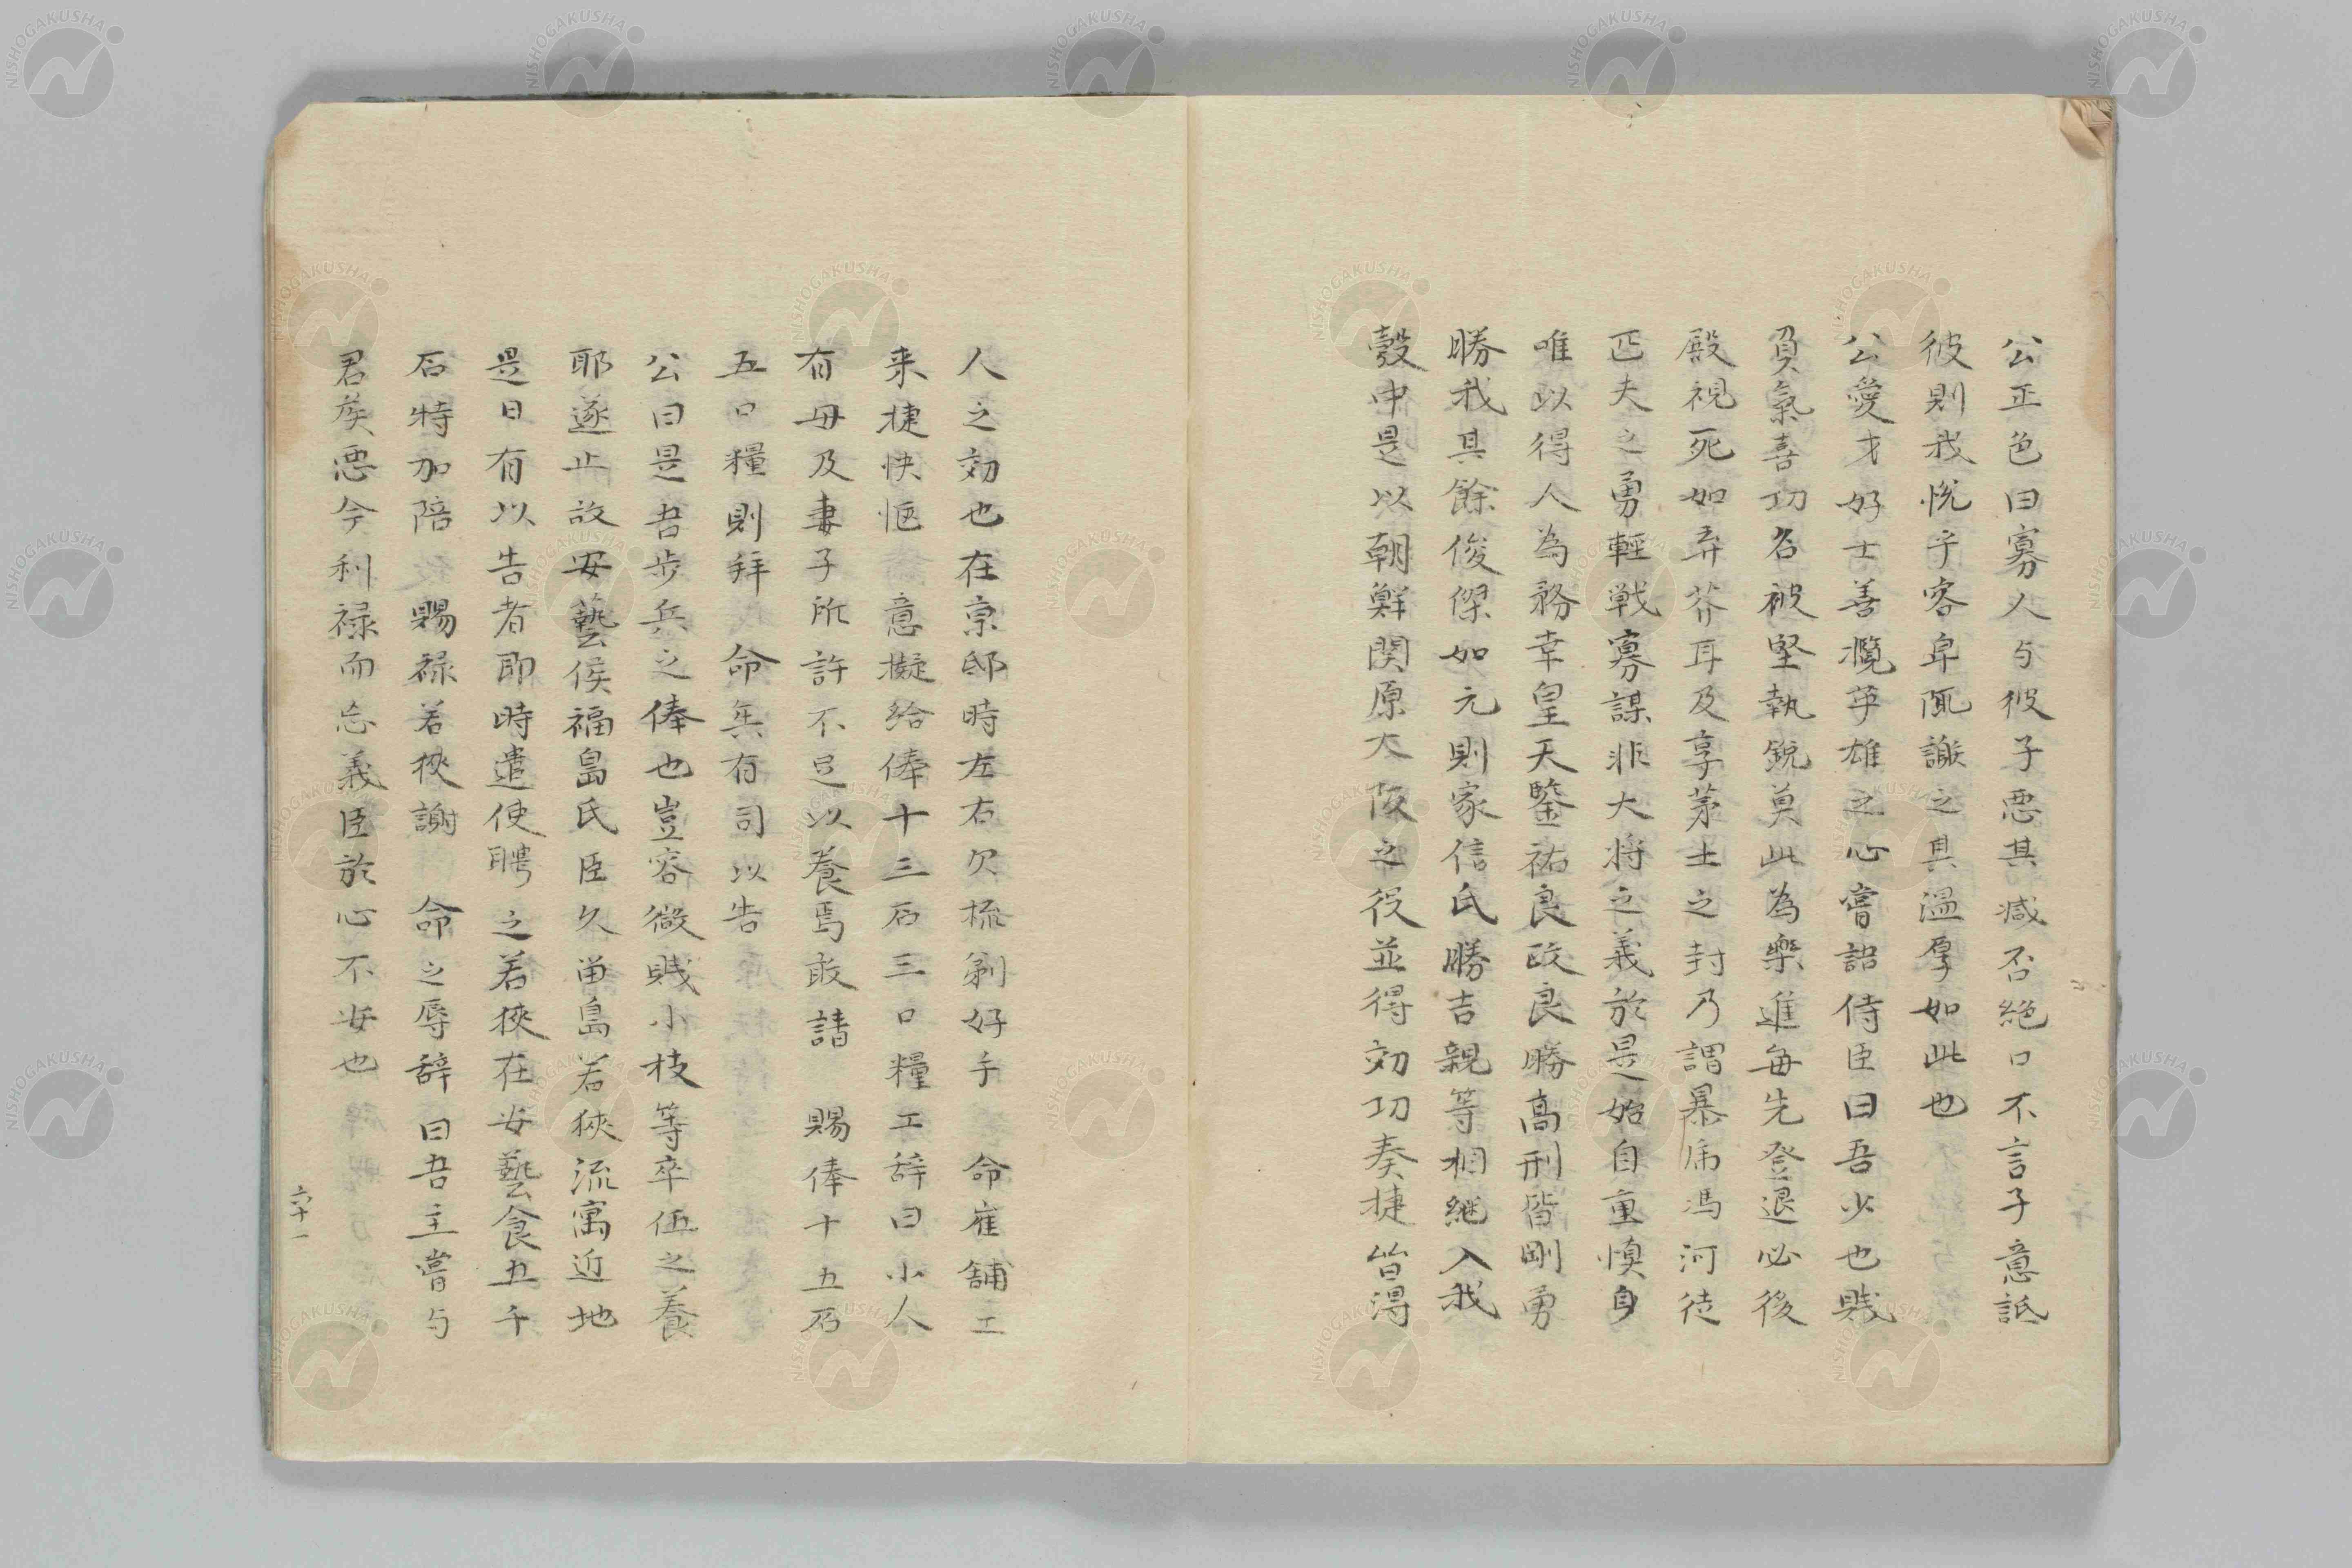 公正色曰寡人与彼子悪其减否絶口不言子意詆
彼則我悦乎客卑陬謝之其温厚如此也
公愛才好士善攬英雄之心嘗詔侍臣曰吾少也賎
負氣喜功名被堅執銳莫此為楽進每先登退必後
殿視死如弃芥耳及享茅土之封乃謂暴虎馮河徒
匹夫之勇輕戦寡謀非大将之義於是始自重慎身
唯以得人為務幸皇天鑒祐良政良勝高刑皆剛勇
勝我其餘俊傑如元則家信氏勝吉親等相継入我
彀中是以朝鮮関原大阪之役並得効功奏捷皆得
人之効也在京邸時左右欠梳剃好手 命雇舗工
来捷快惬意擬給俸十三石三口糧工辞曰小人
有母及妻子所許不足以養焉敢請 賜俸十五石
五口糧則拜 命矣有司以告
公曰是吾歩兵之俸也豈容微賎小枝等卒伍之養
耶遂止故安藝侯福島氏臣久留島若狹流寓近地
是日有以告者即時遣使聘之若狹在安藝食五千
石特加陪 賜禄若狹謝 命之辱辞曰吾主嘗与
君矦悪今利禄而忘義臣於心不安也
六十一